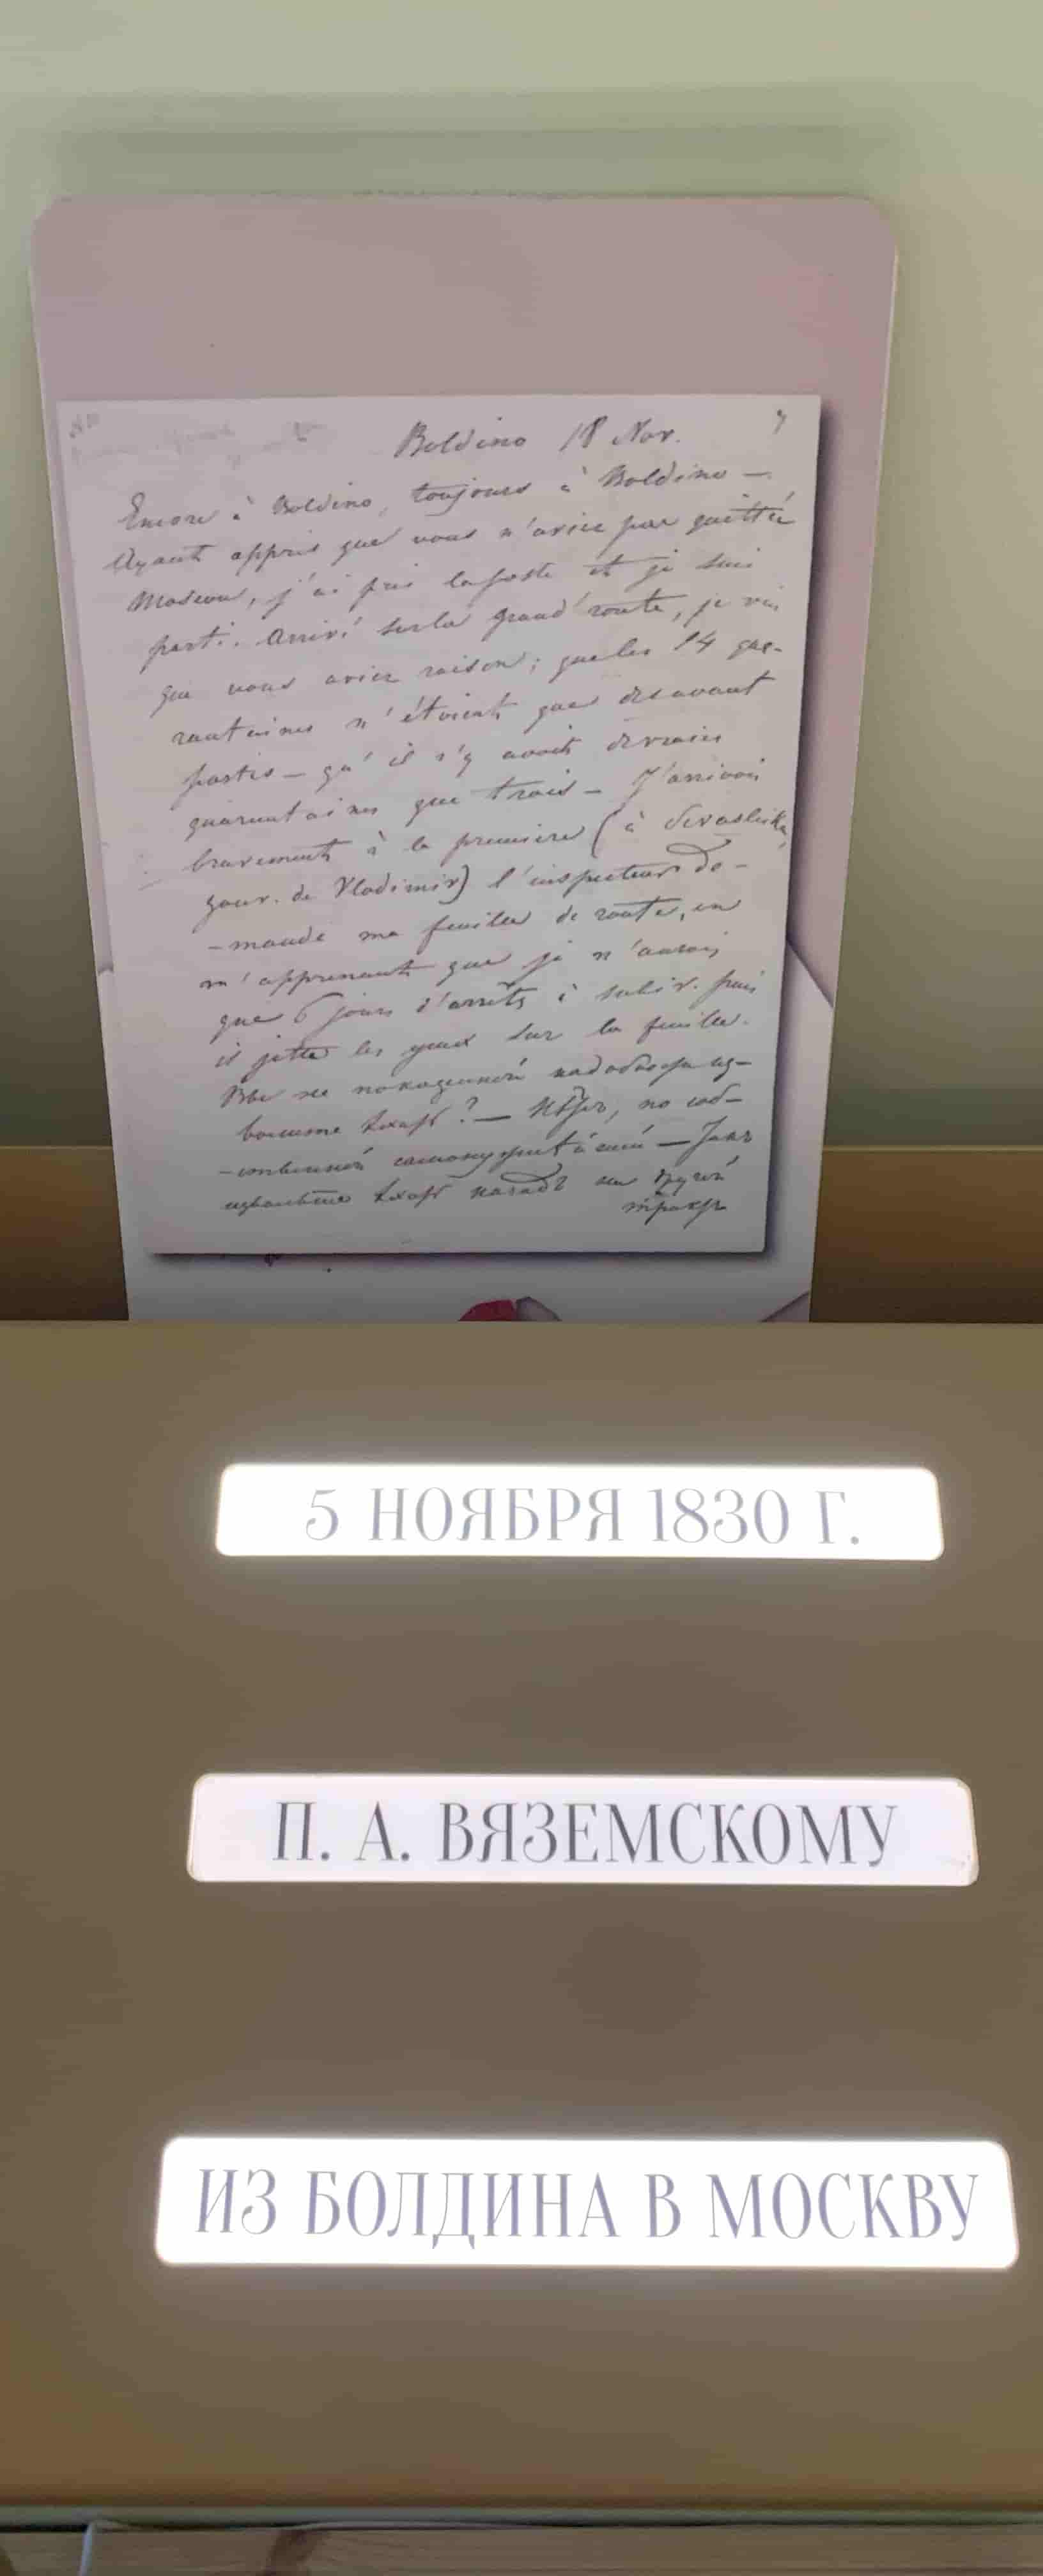 Boldino 18 Nov.
Encore à Boldino, toujours à Boldino —
Ayant appris que vous n'aviez pas quitté
Moscou, j'ai pris la poste et je suis
parti. Arrivé sur la grand'route, je vis
que vous aviez raison; que les 14 qua-
rantaines n'étoient que des avant
postes — qu'il n'y avoit de vraies
quarantaines que trois — J'arrivai
bravement à la première (à Sevasleika
gouv. de Vladimir) l'inspecteur de-
-mande ma feuille de route, en
m'apprenant que je n'aurois
que 6 jours d'arrêts à subir. puis
il jette les yeux sur la feuille.
Вы не по казенной надобности из-
волите ехать? — Нѣтъ, по соб-
-ственной самонужнѣйшей — Такъ
извольте ехать назадъ на другой
трактъ
5 НОЯБРЯ 1830 Г.
П. А. ВЯЗЕМСКОМУ
ИЗ БОЛДИНА В МОСКВУ